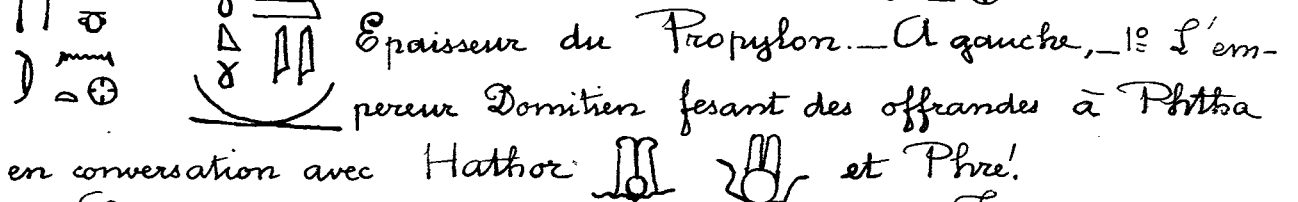 Epaisseur du Propylon._A gauche,_1º L'em-
pereur Domitien fesant des offrandes à Phtha
en conversation avec Hathor et Phre!